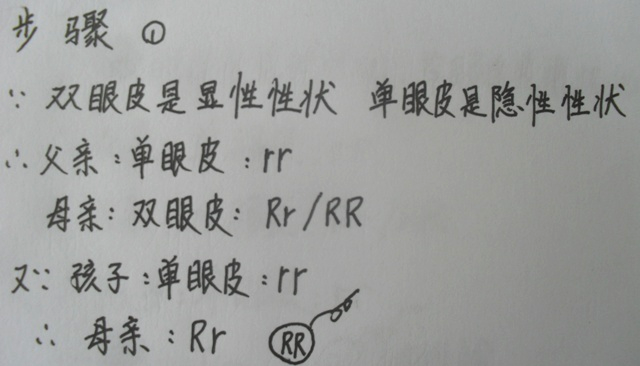 步骤 ①
∵ 双眼皮是显性性状 单眼皮是隐性性状
∴ 父亲:单眼皮:rr
母亲:双眼皮:Rr/RR
又∵ 孩子:单眼皮:rr
∴ 母亲:Rr RR